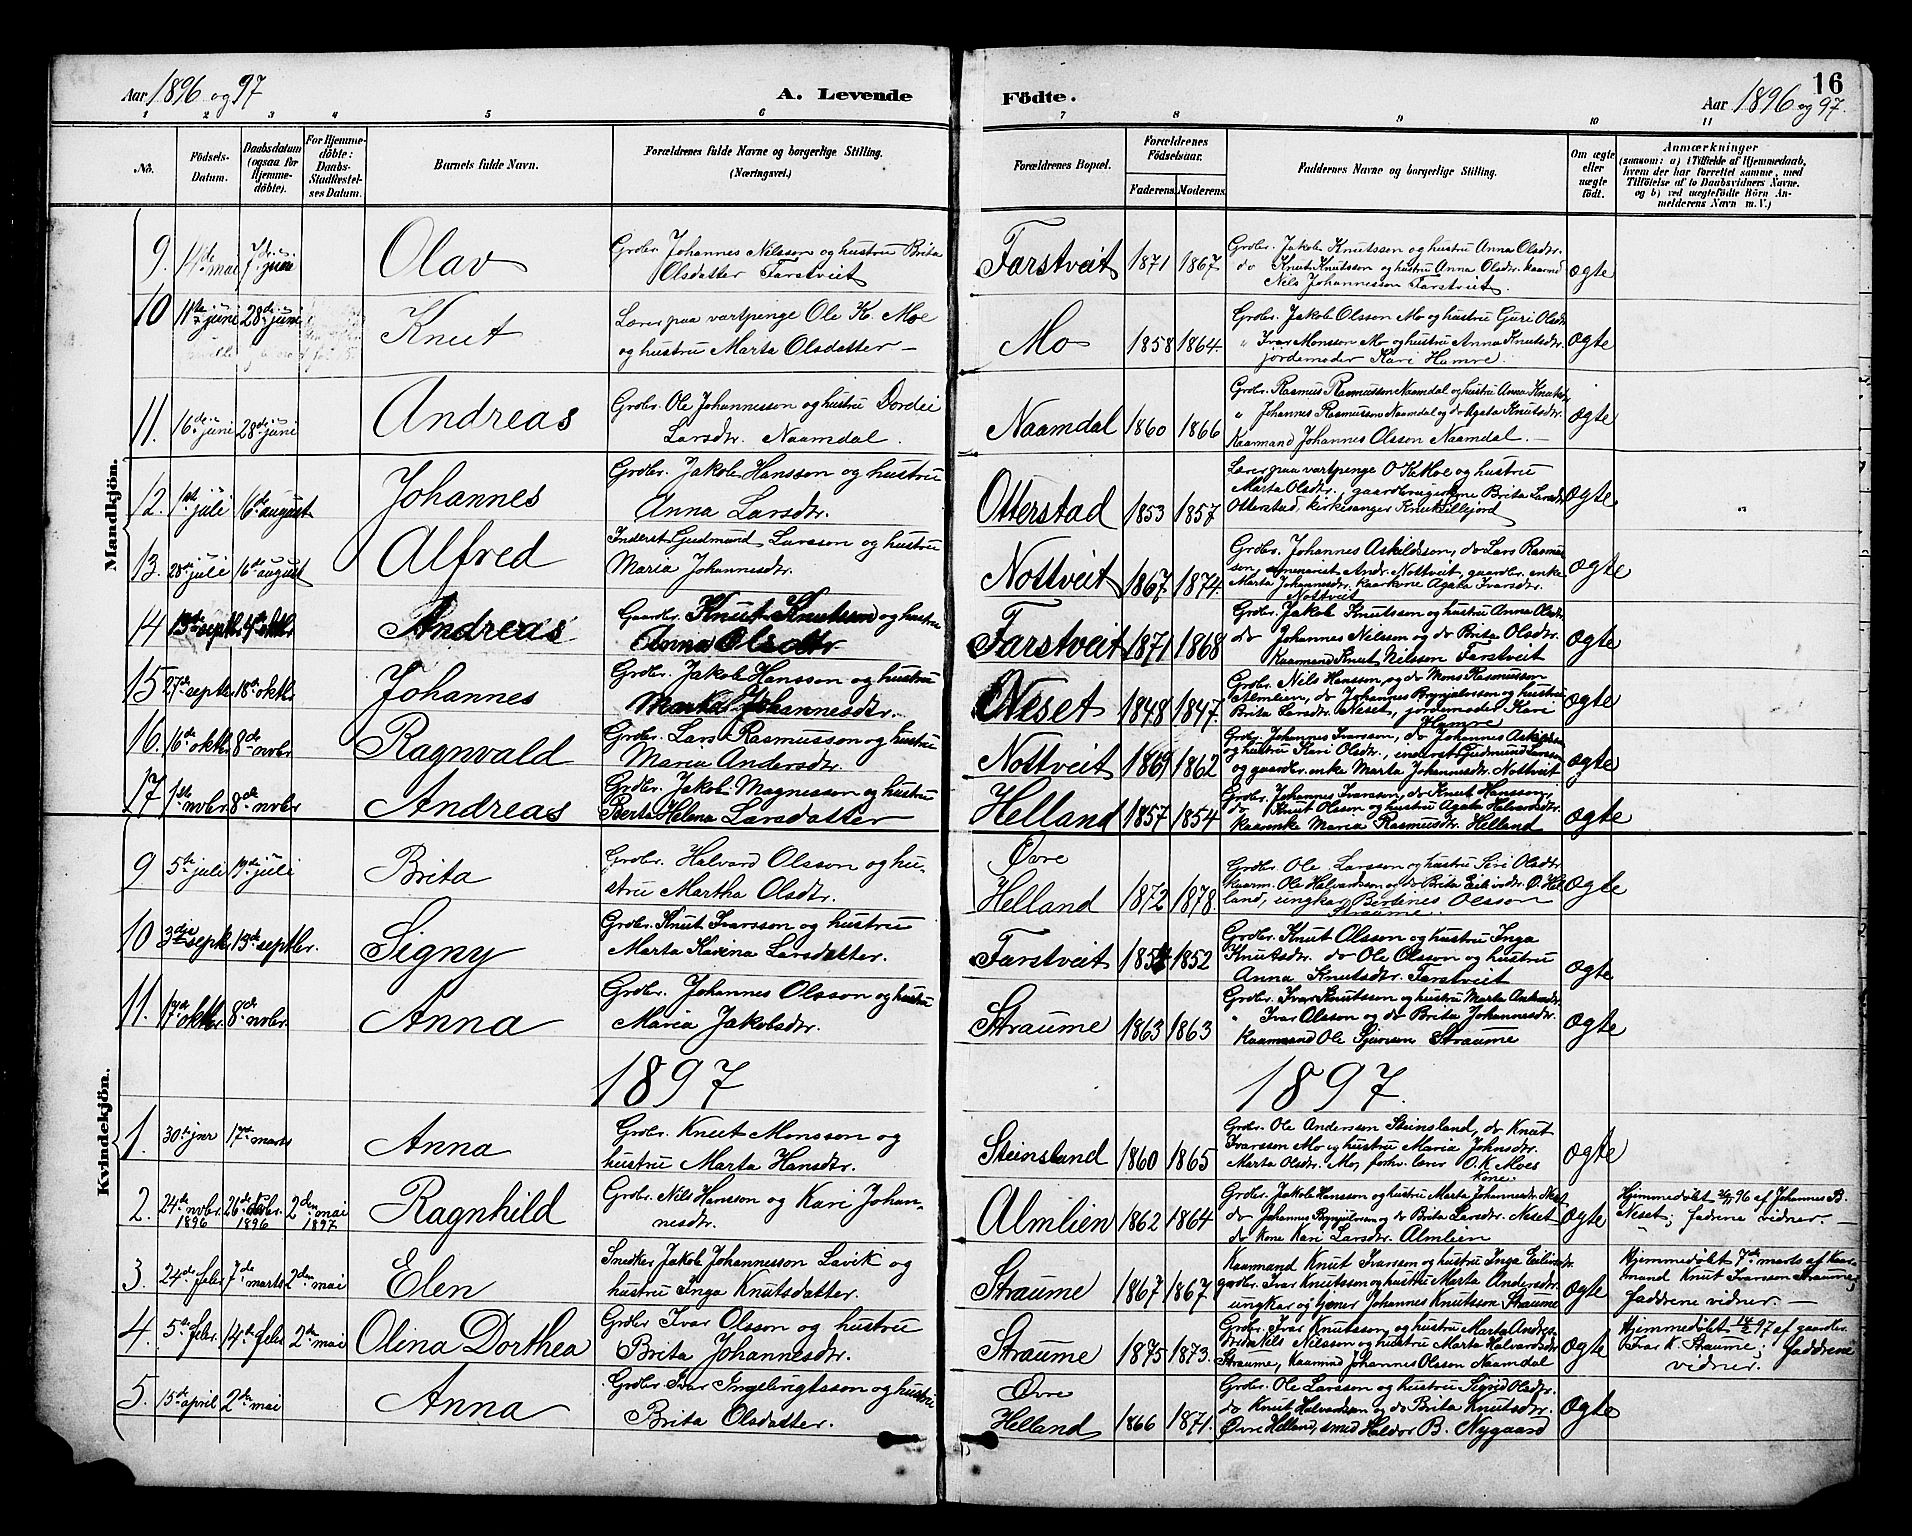 Aar 1896 og 97
A. Levende
Födte.
Aar 1896 og 97.
16
1 2 3 4 5 6 7 8 9 10 11
No.
Födsels-Datum.
Daabsdatum (ogsaa for Hjemme-döbte).
For Hjemme-döbte: Daabs-Stadfæstel-ses Datum.
Barnets fulde Navn.
Forældrenes fulde Navne og borgerlige Stilling. (Næringsvei.)
Forældrenes Bopæl.
Forældrenes Födselsaar.
Faderens. Moderens.
Faddernes Navne og borgerlige Stilling.
Om ægte eller uægte födt.
Anmærkninger
(saasom: a) i Tilfælde af Hjemmedaab, hvem der har forrettet samme, med Tilföielse af to Daabsvidners Navne. og b) ved uægtefödte Börn An-melderens Navn m. V.)
Mandkjön.
9. 14de mai 7de juni Olav Grdbr. Johannes Nilsson og hustru Brita
Olsdatter Farstveit
Farstveit 1871 1867 Grdbr. Jakob Knutsson og hustru Anna Olsdtr.
do Knut Knutsson og hustru Anna Olsdtr. kaarmd
Nils Johannesson Farstveit. ægte
10 11te juni 28de juni Knut Lærer paa vartpenge Ole K. Moe
og hustru Marta Olsdatter —
Mo 1858 1864. Grdbr. Jakob Olsson Mo og hustru Guri Olsdtr
" Ivar Monsson Mo og hustru Anna Knutsdtr.
jordemoder Kari Hamre. ægte
11. 16de juni 28de juni Andreas Grdbr. Ole Johannesson og hustru Dordei
Larsdtr. Naamdal.
Naamdal 1860 1866 Grdbr. Rasmus Rasmusson Naamdal og hustru Anna Knutsdtr
" Johannes Rasmusson Naamdal og do Agata Knutsdtr.
Kaarmand Johannes Olsson Naamdal. — ægte
12. 1ste juli 16de august Johannes Grdbr. Jakob Hansson og hustru
Anna Larsdtr.
Otterstad 1853 1857 Lærer paa vartpenge O K Moe og hustru
Marta Olsdtr. gaardbrugerkone Brita Larsdtr
Otterstad, kirkesanger Knut Lillejord ægte
13. 28de juli 16de august Alfred Inderst Gudmund Larsson og hustru
Maria Johannesdtr.
Nottveit 1867 1874. Grdbr. Johannes Askildsson, do Lars Rasmus-
son, seminarist Andr. Nottveit, gaardbr. enke
Marta Johannesdtr. kaarkone Agata Ivarsdtr.
Nottveit ægte
14 13de septbr 4de oktbr Andreas Gaardbr. Knut Knutsson og hustru
Anna Olsdtr
Farstveit 1871 1868 Grdbr. Jakob Knutsson og hustru Anna Olsdtr
do Johannes Nilsson og do Brita Olsdtr.
Kaarmand Knut Nilsson Farstveit ægte
15. 27de septbr 18de oktbr Johannes Grdbr. Jakob Hansson og hustru
Marta Johannesdtr.
Neset 1848 1847. Grdbr. Nils Hansson, og do Mons Rasmusson
Almlien, do Johannes Brynjulvsson og hustru
Brita Larsdtr. Neset, jordemoder Kari
Hamre ægte
16. 16de oktbr 8de novbr Ragnvald Grdbr. Lars Rasmusson og hustru
Maria Andersdtr.
Nottveit 1869 1862 Grdbr. Johannes Ivarsson, do Johannes Askildsson
og hustru Kari Olsdtr., inderst Gudmund Larsson
og gaardbr. enke Marta Johannesdtr. Nottveit ægte
17 1ste novbr 8de novbr Andreas Grdbr. Jakob Magnesson og hustru
Berta Helena Larsdatter
Helland 1857 1854 Grdbr. Johannes Ivarsson, do Knut Hansson,
do Knut Olsson og hustru Agata Halvardsdtr.
kaarenke Maria Rasmusdtr. Helland ægte
Kvindekjön.
9 5te juli 19de juli Brita Grdbr. Halvard Olsson og hu-
stru Martha Olsdtr.
Øvre
Helland 1872 1878 Grdbr. Ole Larsson og hustru Siri Olsdtr.
kaarm. Ole Halvardsson og do Brita Eiriksdtr. Ø. Hel-
land, ungkar Bertines Olsson
Straume. ægte
10 3die septbr 13de septbr. Signy Grdbr. Knut Ivarsson og hustru
Marta Karina Larsdatter.
Farstveit 1852 Grdbr. Knut Olsson og hustru Inga
Knutsdtr. do Ole Olsson og hustru
Anna Knutsdtr. Farstveit ægte
11. 17de oktbr. 8de novbr. Anna Grdbr. Johannes Olsson og hustru
Maria Jakobsdtr.
Straume 1863 1863 Grdbr. Ivar Knutsson og hustru Marta Andersdtr.
" Ivar Olsson og do Brita Johannesdtr.
Kaarmand Ole Sjursson Straume ægte
1897
1897.
1. 30te jnr 17de marts Anna Grdbr. Knut Monsson og
hustru Marta Hansdtr.
Steinsland 1860 1865 Grdbr. Ole Anderson Steinsland, do Knut
Ivarsson Mo og hustru Maria Johnsdtr.
Marta Olsdtr. Mo, forhv. lærer O. K Moes
kone. ægte
2. 24de novbr. 1896 26de novbr. 1896 2den mai 1897 Ragnhild Grdbr. Nils Hansson og Kari Johan-
nesdtr.
Almlien 1862 1864 Grdbr. Jakob Hansson og hustru Marta Johannesdtr Neset
do Johannes Brynjulvson og do Brita Larsdtr. Neset
do kone Kari Larsdtr. Almlien ægte Hjemmedøbt 96 af Johannes B.
Neset; fadrene vidner. —
3. 24de febr 7de marts 2den mai Elen Snedker Jakob Johannesson Lavik og
hustru Inga Knutsdatter.
Straume 1867 1867 Kaarmand Knut Ivarsson og hustru Inga
grdbr. Ivar Knutsson og hustru Marta Andersdtr.
ungkar og tjener Johannes Knutsson Straume ægte Hjemmedøbt 7de marts af kaar-
mand Knut Ivarsson Straume;
faddrene vidner. —
4. 5te febr. 14de febr 2den mai Olina Dorthea Grdbr Ivar Olsson og hustru
Brita Johannesdtr.
Straume 1875 1873. Grdbr. Ivar Knutsson og hustru Marta Andres-
dtr. Nils Nilsson og hustru Marta Halvardsdtr
Straume, kaarmd Johannes Olsson Naamdal ægte Hjemmedøbt 14/2 97 af gaardbr.
Ivar K. Straume; faddrene
vidner.
5. 15de april 2den mai Anna Grdbr Ivar Ingebrigtsson og hustru
Brita Olsdatter.
Øvre
Helland 1866 1871. Grdbr. Ole Larsson og hustru Sigrid Olsdtr.
do Knut Halvardsson og do Brita Knutsdtr.
Øvre Helland, smed Haldor B. Nygaard ægte